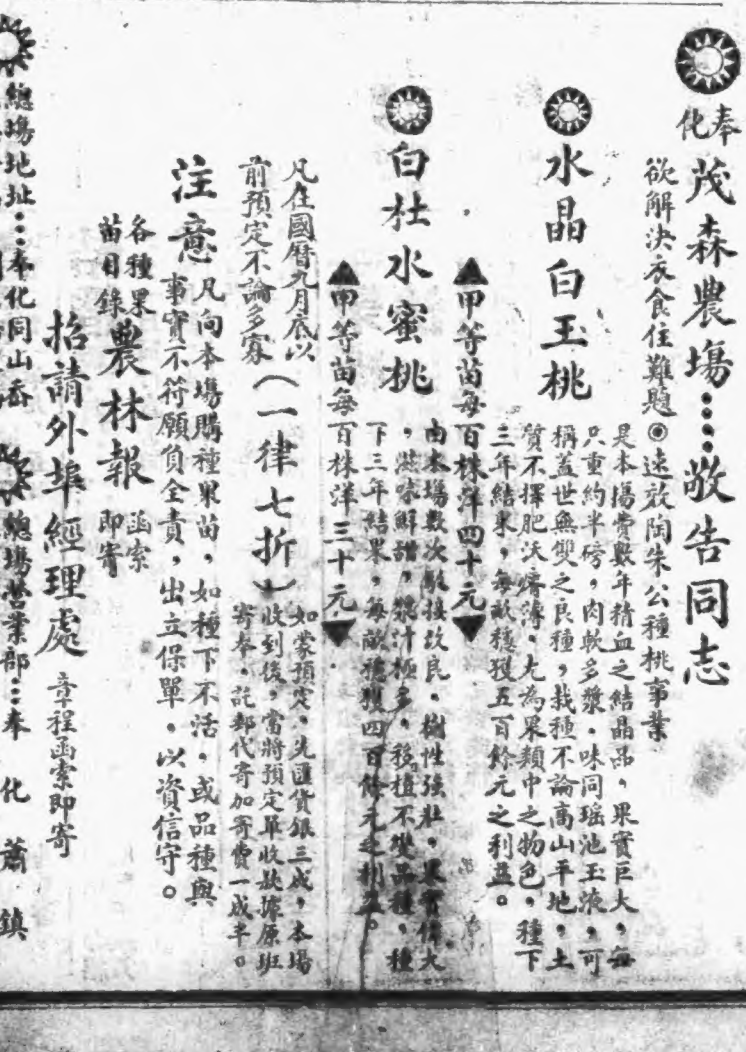 奉化茂森農場：敬告同志
欲解決衣食住難題◎速效陶朱公種桃事業
水晶白玉桃
是本場費數年精血之結晶品，果實巨大，每
只重約半磅，肉軟多漿，味同瑶池玉液，可
稱蓋世無雙之良種，栽種不論高山平地，土
質不擇肥沃瘠薄，尤為果類中之物色，種下
三年結果，每畝穩獲五百餘元之利益。
▲甲等苗每百株洋四十元▼
白杜水蜜桃
由本場數次嫁接改良，樹性強壯，果實偉大
，滋味鮮甜，漿汁極多，移植不變品種，種
下三年結果，每畝穩獲四百餘元之利益。
▲甲等苗每百株洋三十元▼
凡在國曆九月底以
前預定不論多寡
（一律七折）
如蒙預定，先匯貨銀三成，本場
收到後，當將預定單收款據原班
寄奉，託郵代寄加寄費一成半。
注意
凡向本場購種果苗，如種下不活，或品種與
事實不符願負全責，出立保單，以資信守。
各種果
苗目錄
農林報
函索
即寄
招請外埠經理處
章程函索即寄
總場地址：奉化同山岙
總場營業部：奉化蕭鎮